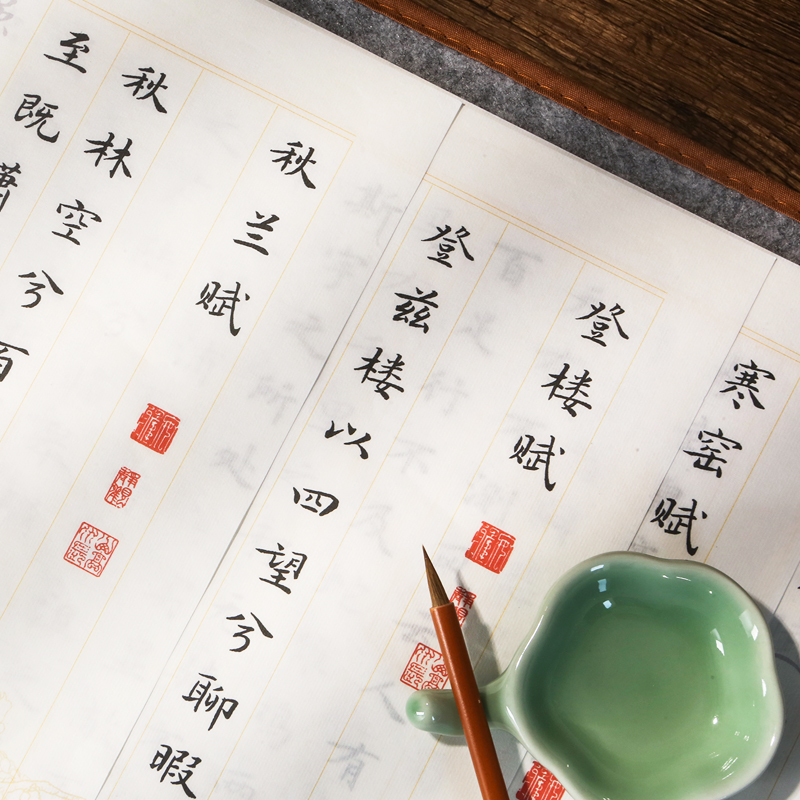 寒窑赋
登楼赋
登兹楼以四望兮聊暇
秋兰赋
秋林空兮百
至既